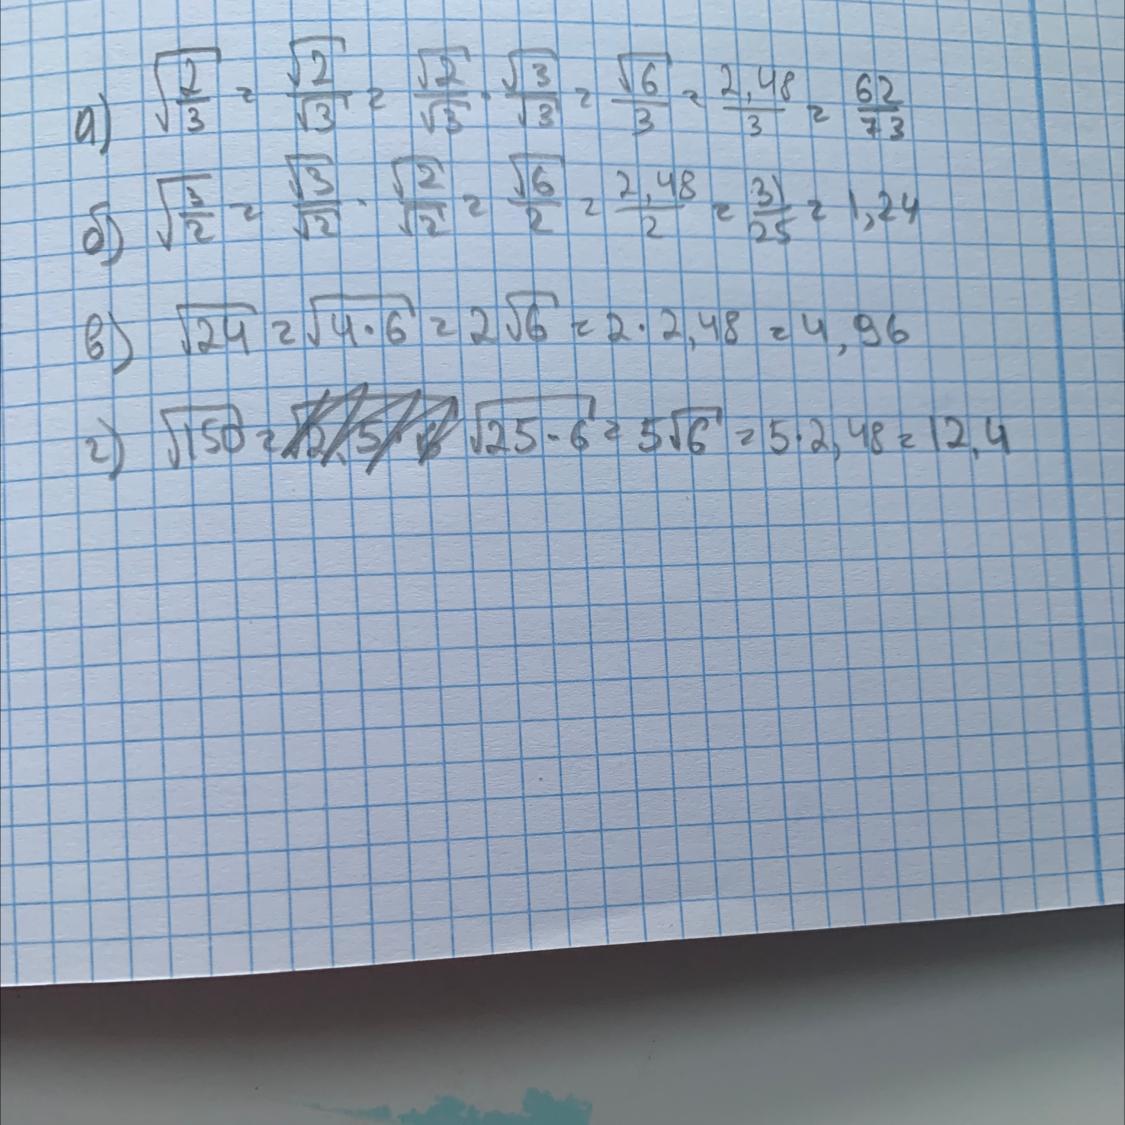 а) √(2/3) = √2/√3 = √2/√3 · √3/√3 = √6/3 = 2,48/3 = 62/73
б) √(3/2) = √3/√2 · √2/√2 = √6/2 = 2,48/2 = 31/25 = 1,24
в) √24 = √4·6 = 2√6 = 2·2,48 = 4,96
г) √150 = √25·6 = 5√6 = 5·2,48 = 12,4